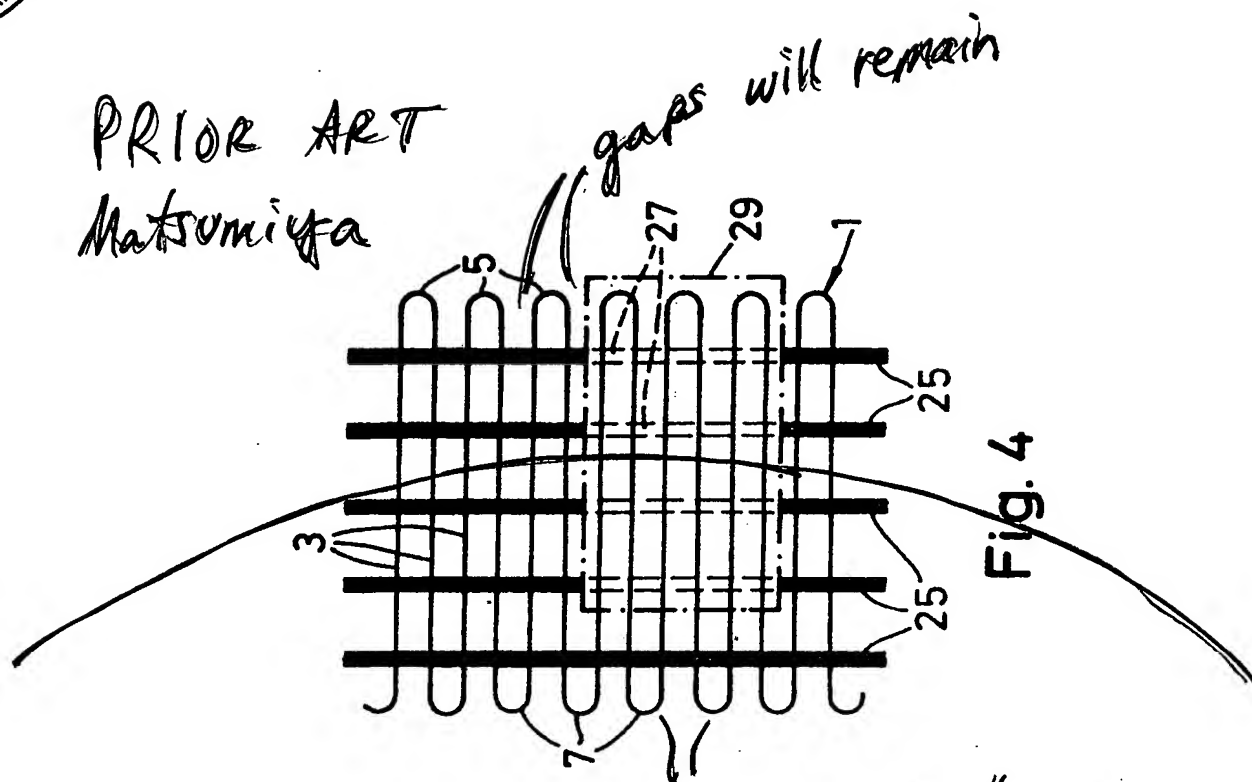 PRIOR ART
Matsumiya
gaps will remain
5
27
29
1
3
25
25
25
7
Fig. 4